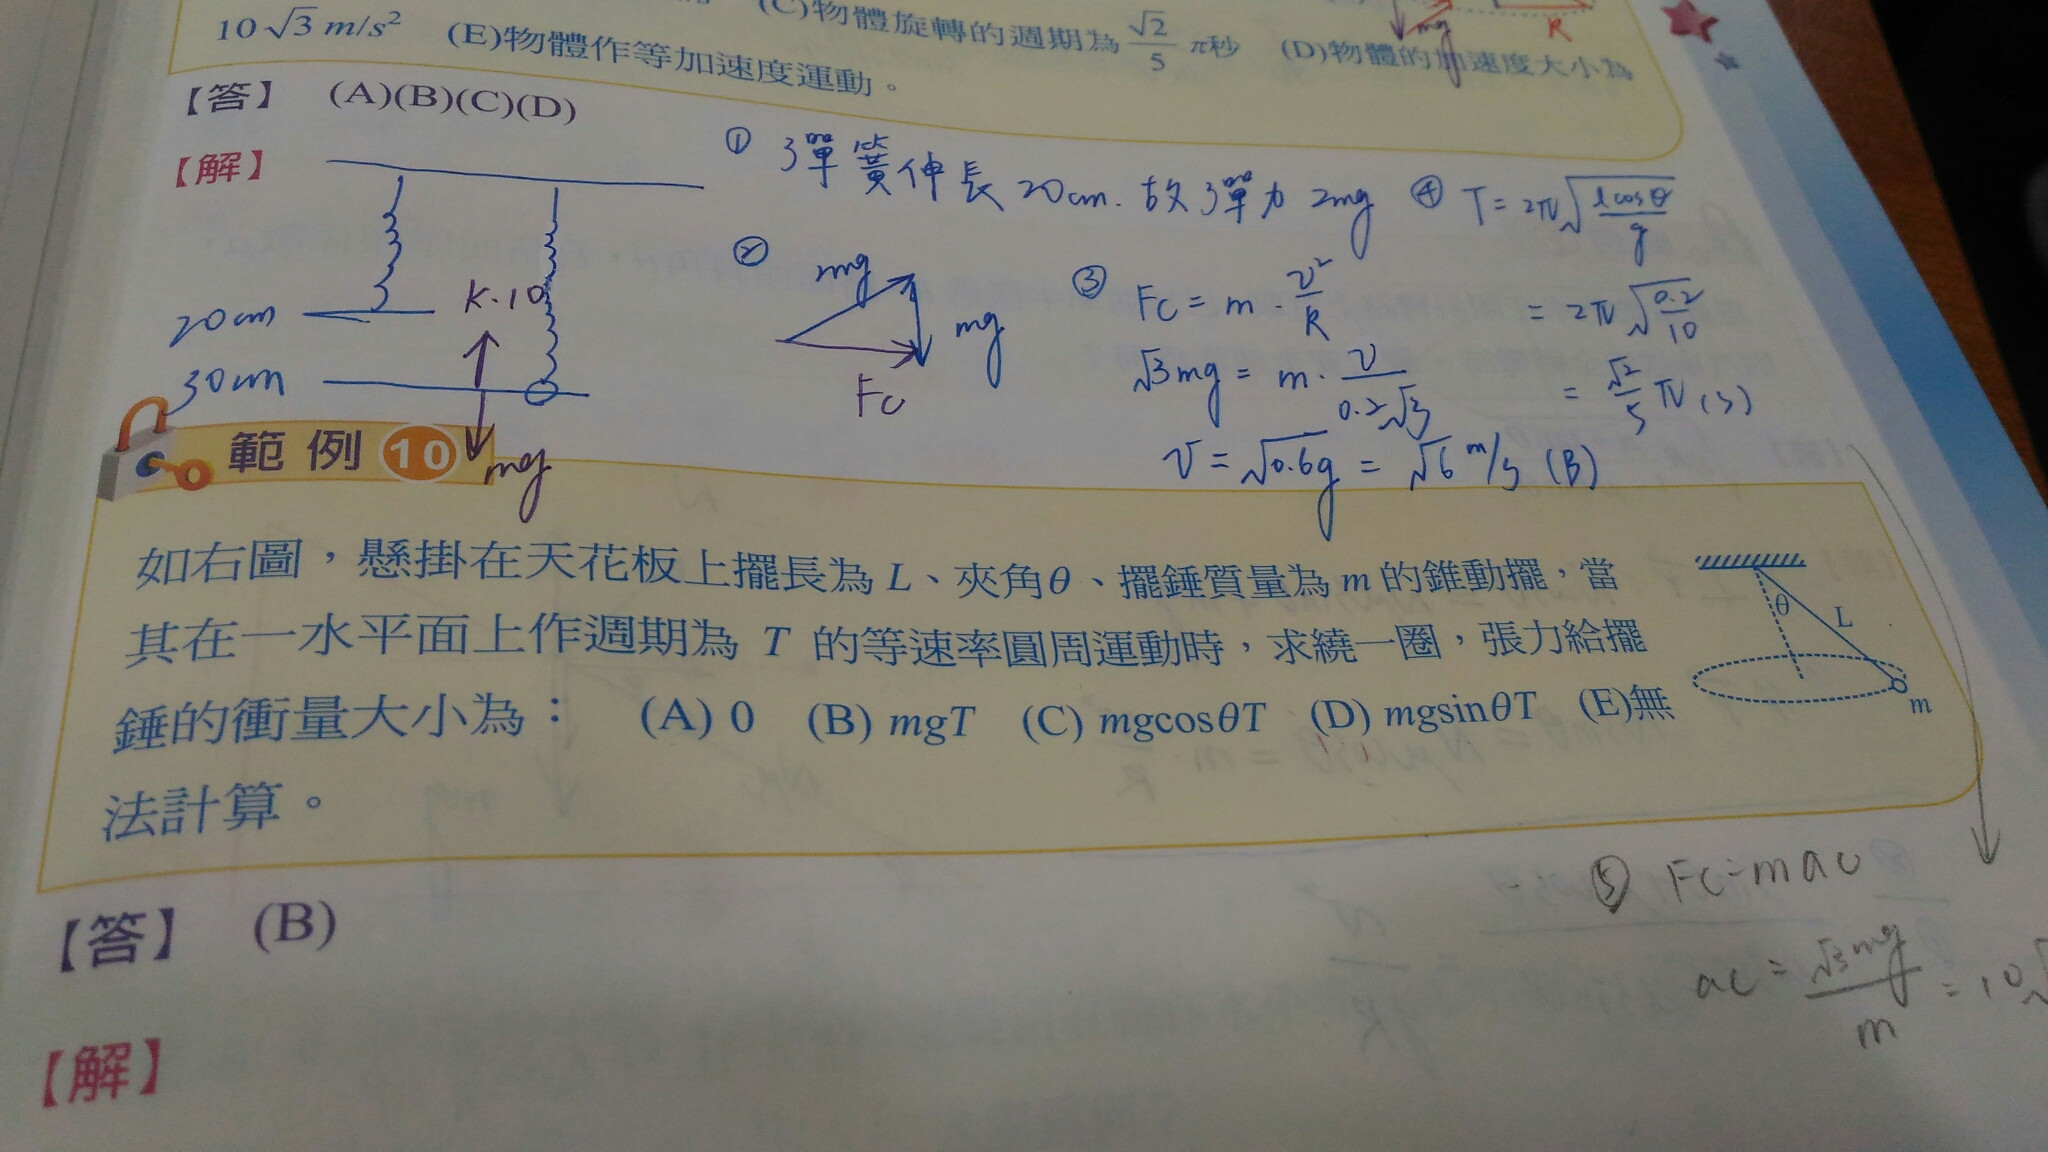 (C)物體旋轉的週期為 √2/5 π秒 (D)物體的加速度大小為
10√3 m/s² (E)物體作等加速度運動。
mg
R
【答】 (A)(B)(C)(D)
【解】
20cm
30cm
K·10
mg
① 彈簧伸長20cm.故彈力2mg
② mg
mg
Fc
③ Fc = m·v²/R
√3mg = m·v/0.2√3
v = √0.6g = √6 m/s (B)
④ T = 2π√(lcosθ/g)
= 2π√(0.2/10)
= √2/5 π(s)
範例 10
如右圖,懸掛在天花板上擺長為 L、夾角θ、擺錘質量為 m 的錐動擺,當
其在一水平面上作週期為 T 的等速率圓周運動時,求繞一圈,張力給擺
錘的衝量大小為: (A) 0 (B) mgT (C) mgcosθT (D) mgsinθT (E)無
法計算。
θ
L
m
【答】 (B)
【解】
⑤ Fc=mac
ac = √3mg/m = 10√